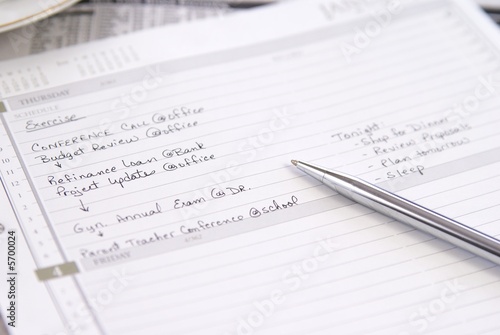 THURSDAY
SCHEDULE
Exercise
CONFERENCE CALL @office
Budget Review @office
Refinance Loan @Bank
Project Updates @office
Gyn. Annual Exam @DR.
Parent Teacher Conference @school
Tonight
- Shop for Dinner
- Review Proposals
- Plan tomorrows
- sleep
10
11
12
1
2
3
4
FRIDAY
Adobe Stock | #5700024